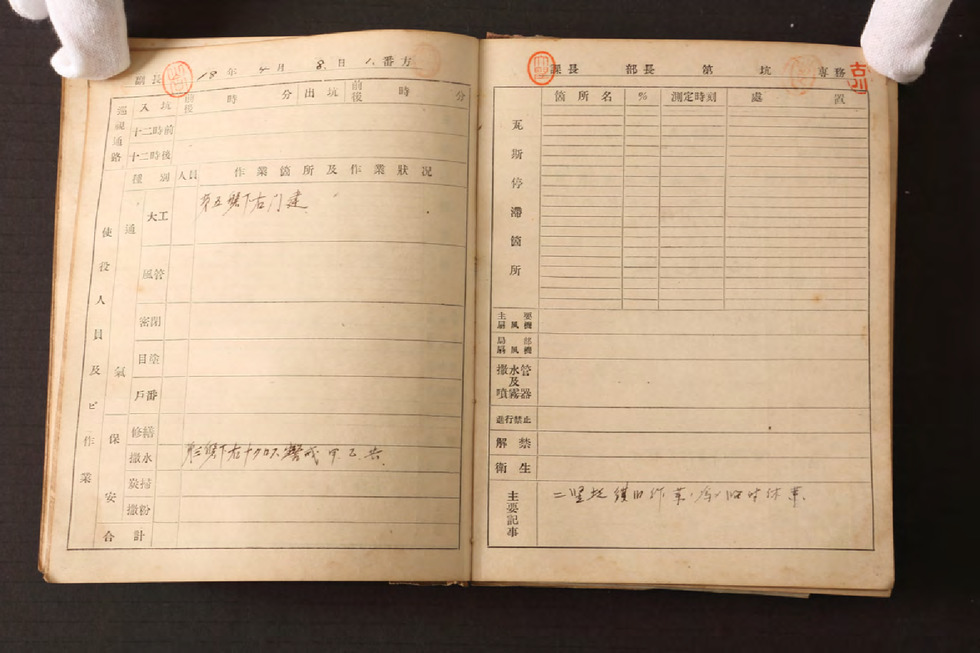 副長 18年4月8日1番方
巡視通路
入坑 前後 時 分 出坑 前後 時 分
十二時前
十二時後
種別 人員 作業箇所及作業狀况
使役人員及ビ作業
通氣
大工 第五盤下右門建
風管
密閉
目塗
戶番
保安
修繕
撒水 第三盤下右十クロス 甲乙共
炭掃
撒粉
合計
課長 部長 第 坑 專務
古川
瓦斯停滯箇所
箇所名 % 測定時刻 處置
主要扇風機
局部扇風機
撒水管及噴霧器
進行禁止
解禁
衛生
主要記事 二竪坑 作業 臨時休業